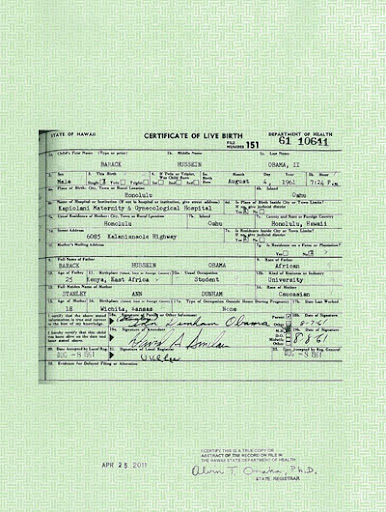 STATE OF HAWAII CERTIFICATE OF LIVE BIRTH DEPARTMENT OF HEALTH
FILE NUMBER 151 61 10641
1a. Child's First Name (Type or print) 1b. Middle Name 1c. Last Name
BARACK HUSSEIN OBAMA, II
2. Sex 3. This Birth 4. If Twin or Triplet, Was Child Born 5a. Birth Date Month Day Year 5b. Hour
Male Single Twin Triplet 1st 2nd 3rd August 4, 1961 7:24 P.M.
6a. Place of Birth: City, Town or Rural Location 6b. Island
Honolulu Oahu
6c. Name of Hospital or Institution (If not in hospital or institution, give street address) 6d. Is Place of Birth Inside City or Town Limits? If no, give judicial district
Kapiolani Maternity & Gynecological Hospital Yes No
7a. Usual Residence of Mother: City, Town or Rural Location 7b. Island 7c. County and State or Foreign Country
Honolulu Oahu Honolulu, Hawaii
7d. Street Address 7e. Is Residence Inside City or Town Limits? If no, give judicial district
6085 Kalanianaole Highway Yes No
7f. Mother's Mailing Address 7g. Is Residence on a Farm or Plantation?
Yes No
8. Full Name of Father 9. Race of Father
BARACK HUSSEIN OBAMA African
10. Age of Father 11. Birthplace 12a. Usual Occupation 12b. Kind of Business or Industry
25 Kenya, East Africa Student University
13. Full Maiden Name of Mother 14. Race of Mother
STANLEY ANN DUNHAM Caucasian
15. Age of Mother 16. Birthplace 17a. Type of Occupation Outside Home During Pregnancy 17b. Date Last Worked
18 Wichita, Kansas None
I certify that the above stated information is true and correct to the best of my knowledge. 18a. Signature of Parent or Other Informant Parent Other 18b. Date of Signature
Dunham Obama 8-7-61
I hereby certify that this child was born alive on the date and hour stated above. 19a. Signature of Attendant M.D. D.O. Midwife Other 19b. Date of Signature
David A Sinclair 8-8-61
20. Date Accepted by Local Reg. 21. Signature of Local Registrar 22. Date Accepted by Reg. General
AUG -8 1961 AUG -8 1961
23. Evidence for Delayed Filing or Alteration
APR 25 2011
I CERTIFY THIS IS A TRUE COPY OR
ABSTRACT OF THE RECORD ON FILE IN
THE HAWAII STATE DEPARTMENT OF HEALTH
Alvin T. Onaka, Ph.D.
STATE REGISTRAR